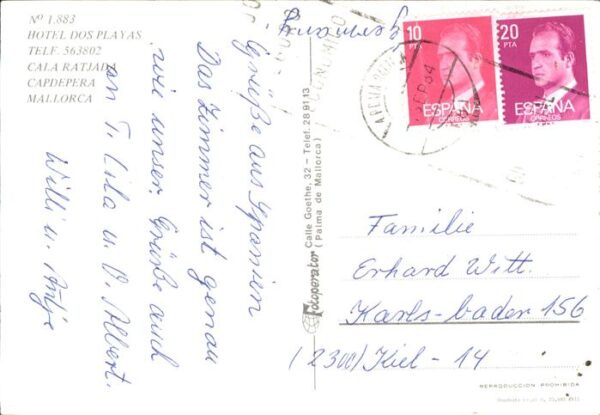 Nº 1.883
HOTEL DOS PLAYAS
TELF. 563802
CALA RATJADA
CAPDEPERA
MALLORCA
Grüße aus Spanien
Das Zimmer ist genau
wie unser. Grüße auch
an T. Lila u. O. Albert.
Willi u. Antje
Fotoperator Calle Goethe, 32 - Telef. 28 91 13
(Palma de Mallorca)
10
PTA
ESPAÑA
CORREOS
20
PTA
ESPAÑA
CORREOS
Familie
Erhard Witt.
Karls-bader 156
(2300) Kiel - 14
REPRODUCCION PROHIBIDA